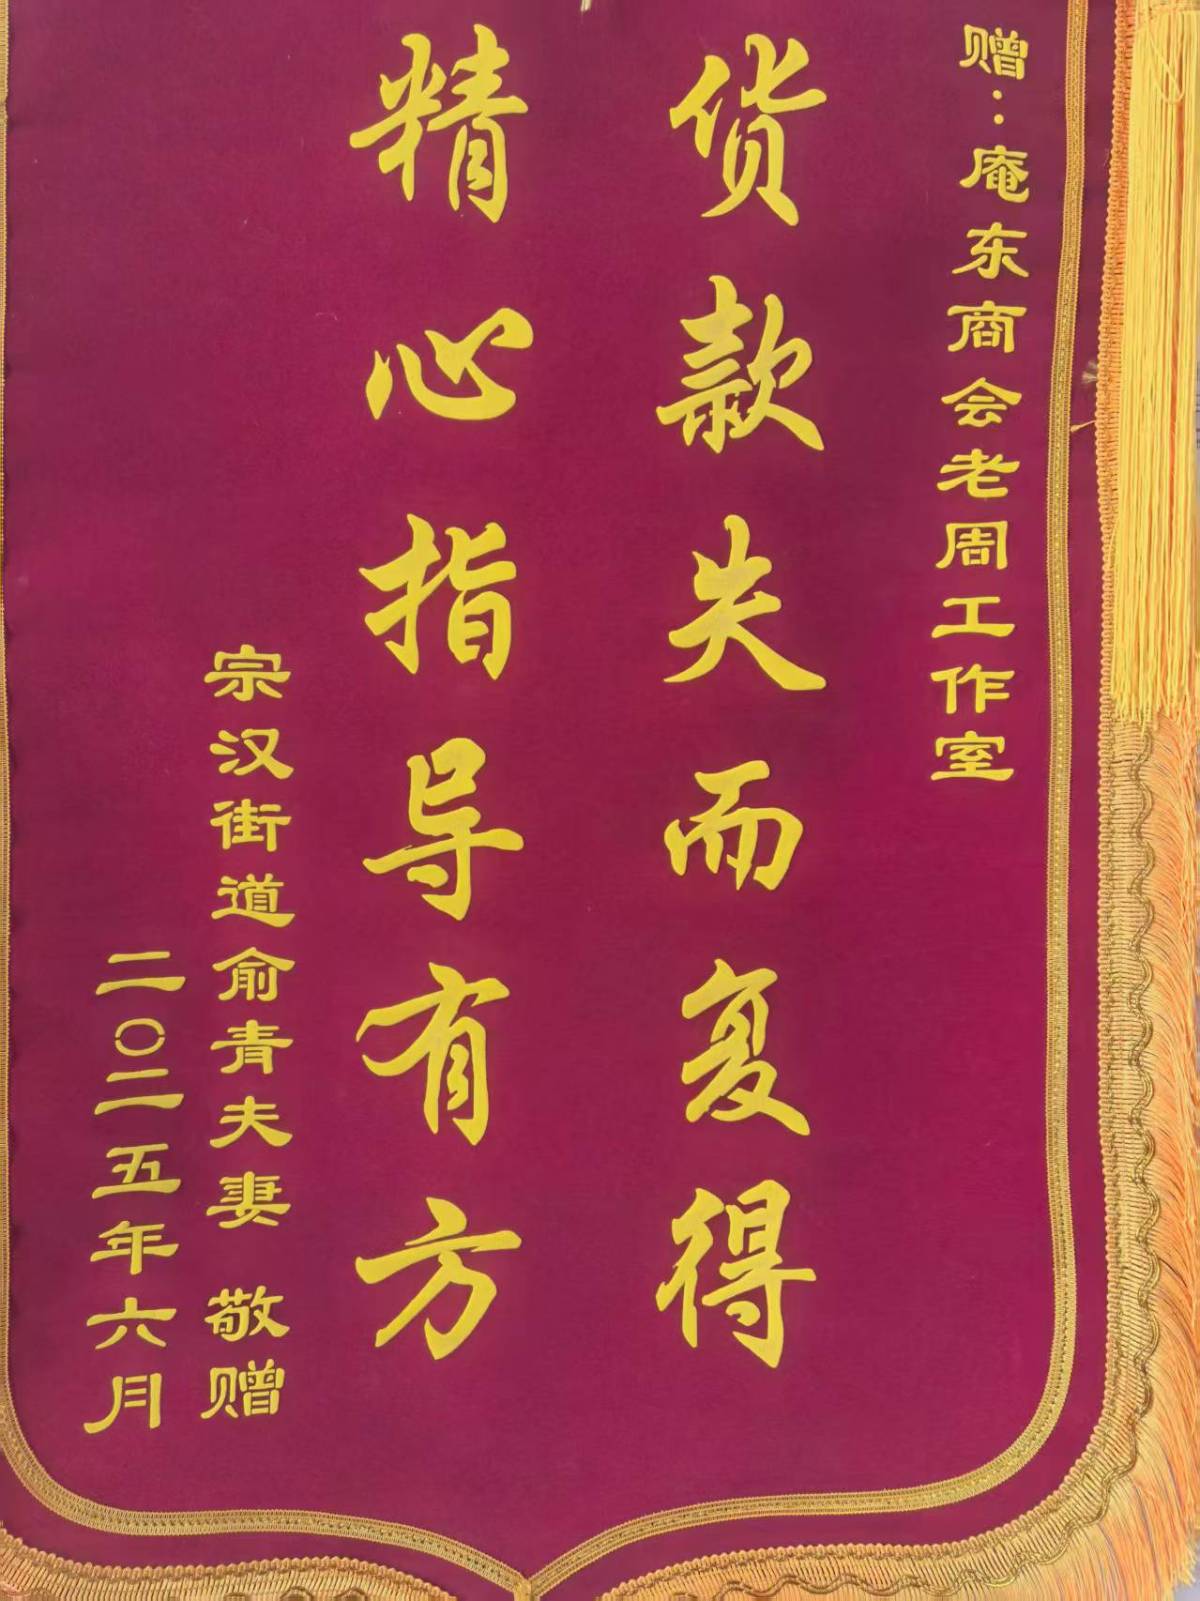 赠：庵东商会老周工作室
货款失而复得
精心指导有方
宗汉街道俞青夫妻 敬赠
二〇二五年六月